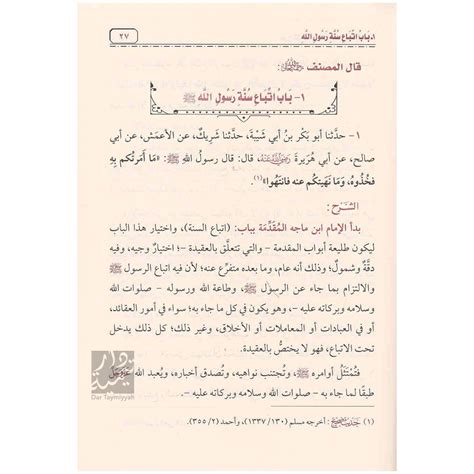 ١. بَابُ اتِّبَاعِ سُنَّةِ رَسُولِ اللَّهِ
٢٧
قال المصنف رحمه الله:
١- بَابُ اتِّبَاعِ سُنَّةِ رَسُولِ اللَّهِ ﷺ
١ - حدَّثنا أبو بَكْر بنُ أبي شَيْبَةَ، حدَّثنا شَرِيكٌ، عن الأعمَش، عن أبي
صالح، عن أبي هُرَيرةَ رَضِيَ اللهُ عَنْهُ، قال: قال رسولُ اللَّهِ ﷺ: «مَا أَمَرتُكُم بِهِ
فخُذُوهُ، وَمَا نَهَيتُكُم عنه فانتَهُوا»(١).
الشَّرحُ:
بدأ الإمام ابن ماجه المُقدِّمة بباب: (اتباع السنة)، واختيار هذا الباب
ليكون طليعة أبواب المقدمة - والتي تتعلَّق بالعقيدة -؛ اختيارٌ وجيه، وفيه
دقَّةٌ وشمولٌ؛ وذلك أنه عام، وما بعده متفرِّع عنه؛ لأن فيه اتباع الرسول ﷺ
والالتزام بما جاء عن الرسول ﷺ، وطاعة الله ورسوله - صلوات الله
وسلامه وبركاته عليه -، وهو يكون في كل ما جاء به؛ سواء في أمور العقائد،
أو في العبادات أو المعاملات أو الأخلاق، وغير ذلك؛ كل ذلك يدخل
تحت الاتباع، فهو لا يختصُّ بالعقيدة.
فتُمتَثَلُ أوامره ﷺ، وتُجتنب نواهيه، وتُصدق أخباره، ويُعبد الله عَزَّوَجَلَّ
طبقًا لما جاء به - صلوات الله وسلامه وبركاته عليه -.
(١) حديث صحيح: أخرجه مسلم (١٣٣٧/١٣٠)، وأحمد (٣٥٥/٢).
دار تيمية
Dar Taymiyyah